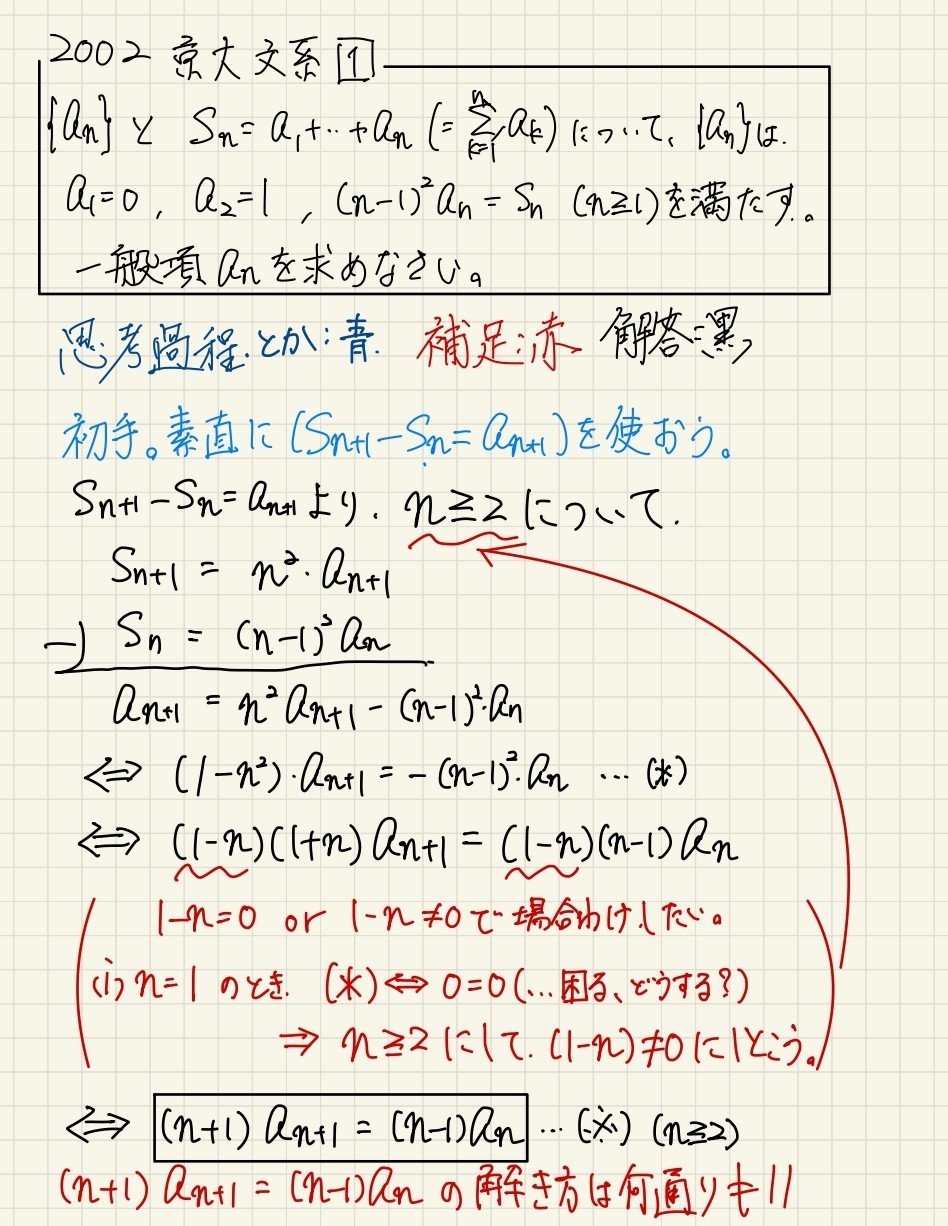 2002 京大文系 1
{an} と Sn = a1+‥+an (= Σ[k=1→n] ak) について、{an}は.
a1=0 , a2=1 , (n-1)²an = Sn (n≧1)を満たす。
一般項 an を求めなさい。
思考過程とか:青 補足:赤 解答:黒
初手。素直に (Sn+1-Sn = an+1)を使おう。
Sn+1-Sn = an+1 より. n≧2 について.
Sn+1 = n²・an+1
-) Sn = (n-1)²an
an+1 = n²an+1 - (n-1)²・an
⇔ (1-n²)・an+1 = -(n-1)²・an … (*)
⇔ (1-n)(1+n)an+1 = (1-n)(n-1)an
1-n=0 or 1-n≠0 で 場合わけしたい。
(i) n=1 のとき. (*)⇔ 0=0(…困る、どうする?)
⇒ n≧2 にして. (1-n)≠0 にしとこう。
⇔ (n+1)an+1 = (n-1)an … (※) (n≧2)
(n+1)an+1 = (n-1)an の解き方は何通りも!!